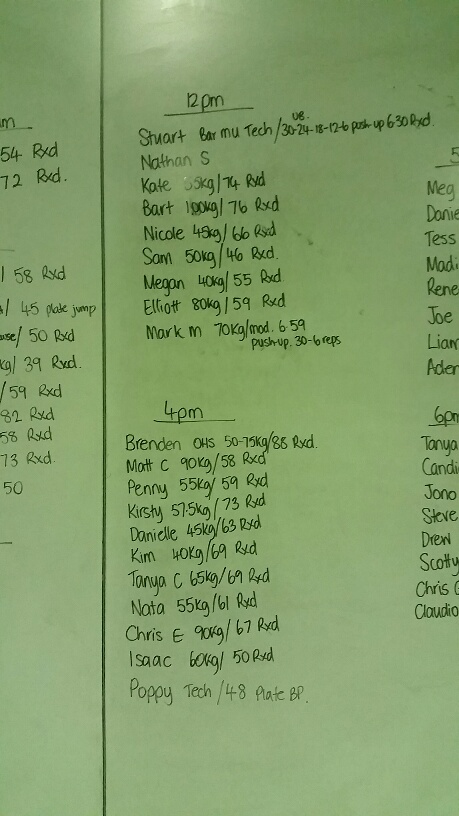 54 Rxd
72 Rxd.
58 Rxd
45 plate jump
50 Rxd
kg/ 39 Rxd.
/59 Rxd
82 Rxd
58 Rxd
73 Rxd.
50
12pm
UB.
Stuart Bar mu Tech/30-24-18-12-6 push-up 6:30 Rxd.
Nathan S
Kate 55kg/74 Rxd
Bart 100kg/76 Rxd
Nicole 45kg/66 Rxd
Sam 50kg/46 Rxd.
Megan 40kg/55 Rxd
Elliott 80kg/59 Rxd
Mark m 70kg/mod. 6:59
push-up. 30-6 reps
4pm
Brenden OHS 50-75kg/88 Rxd.
Matt C 90kg/58 Rxd
Penny 55kg/59 Rxd
Kirsty 57.5kg/73 Rxd
Danielle 45kg/63 Rxd
Kim 40kg/69 Rxd
Tanya C 65kg/69 Rxd
Nata 55kg/61 Rxd
Chris E 90kg/67 Rxd
Isaac 60kg/50 Rxd
Poppy Tech/48 Plate BP.
5
Meg
Danie
Tess
Madi
Rene
Joe
Liam
Aden
6pm
Tanya
Candi
Jono
Steve
Drew
Scotty
Chris
Claudio